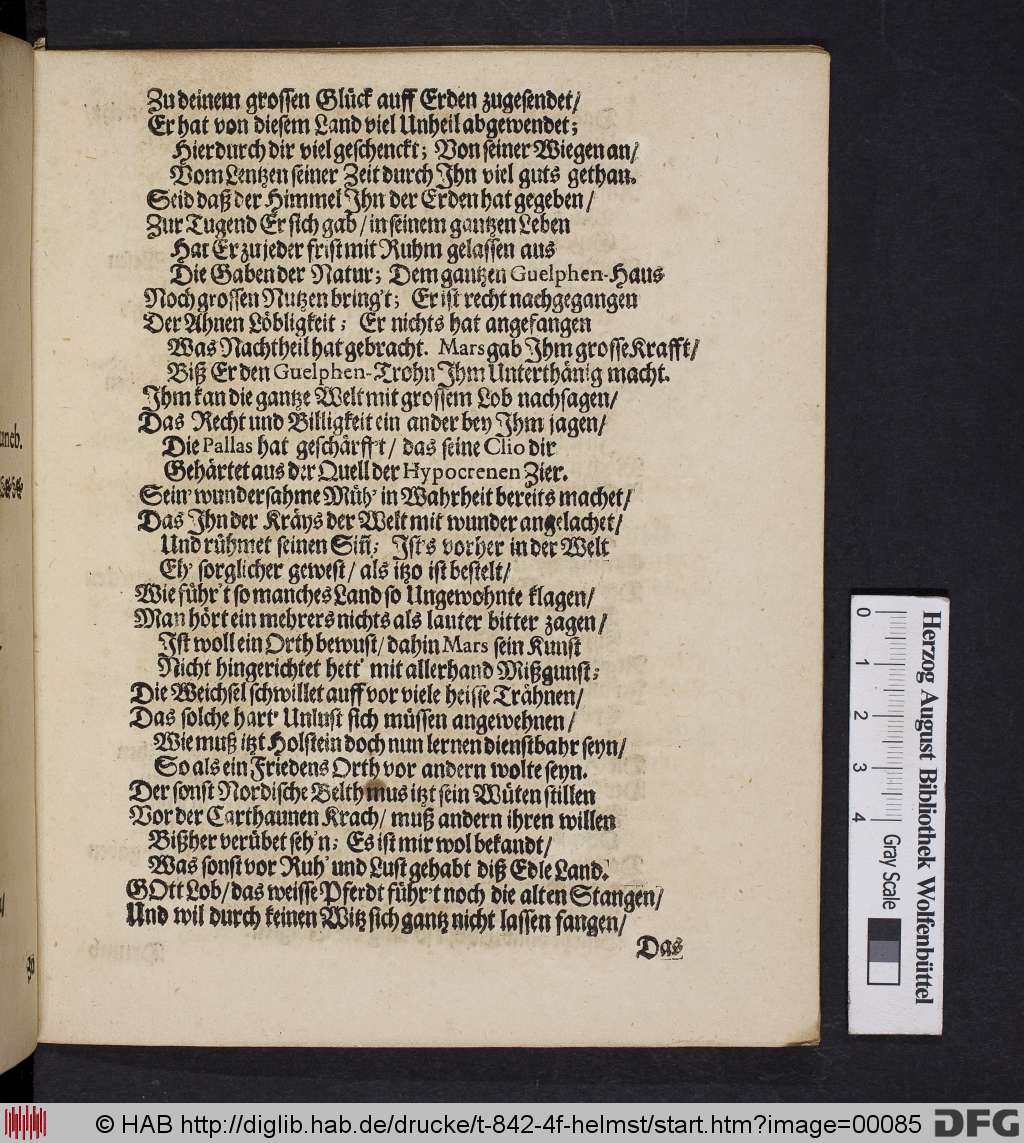 Zu deinem grossen Glück auff Erden zugesendet/
Er hat von diesem Land viel Unheil abgewendet;
Hierdurch dir viel geschenckt; Von seiner Wiegen an/
Vom Lentzen seiner Zeit durch Ihn viel guts gethan.
Seid daß der Himmel Ihn der Erden hat gegeben/
Zur Tugend Er sich gab/ in seinem gantzen Leben
Hat Er zu jeder frist mit Ruhm gelassen aus
Die Gaben der Natur; Dem gantzen Guelphen-Haus
Noch grossen Nutzen bring't; Er ist recht nachgegangen
Der Ahnen Löbligkeit; Er nichts hat angefangen
Was Nachtheil hat gebracht. Mars gab Ihm grosse Krafft/
Biß Er den Guelphen-Trohn Ihm Unterthänig macht.
Ihm kan die gantze Welt mit grossem Lob nachsagen/
Das Recht und Billigkeit ein ander bey Ihm jagen/
Die Pallas hat geschärfft/ das seine Clio dir
Gehärtet aus der Quell der Hypocrenen Zier.
Sein' wundersahme Müh' in Wahrheit bereits machet/
Das Ihn der Kräys der Welt mit wunder angelachet/
Und rühmet seinen Siñ; Ist's vorher in der Welt
Eh' sorglicher gewest/ als itzo ist bestelt/
Wie führ't so manches Land so Ungewohnte klagen/
Man hört ein mehrers nichts als lauter bitter zagen/
Ist woll ein Orth bewust/ dahin Mars sein Kunst
Nicht hingerichtet hett' mit allerhand Mißgunst;
Die Weichsel schwillet auff vor viele heisse Trähnen/
Das solche hart' Unlust sich müssen angewehnen/
Wie muß itzt Holstein doch nun lernen dienstbahr seyn/
So als ein Friedens Orth vor andern wolte seyn.
Der sonst Nordische Belth mus itzt sein Wüten stillen
Vor der Carthaunen Krach/ muß andern ihren willen
Bißher verübet seh'n; Es ist mir wol bekandt/
Was sonst vor Ruh' und Lust gehabt diß Edle Land.
GOtt Lob/ das weisse Pferdt führ't noch die alten Stangen/
Und wil durch keinen Witz sich gantz nicht lassen fangen/
Das
uneb.
0 1 2 3 4
Gray Scale
Herzog August Bibliothek Wolfenbüttel
© HAB http://diglib.hab.de/drucke/t-842-4f-helmst/start.htm?image=00085
DFG